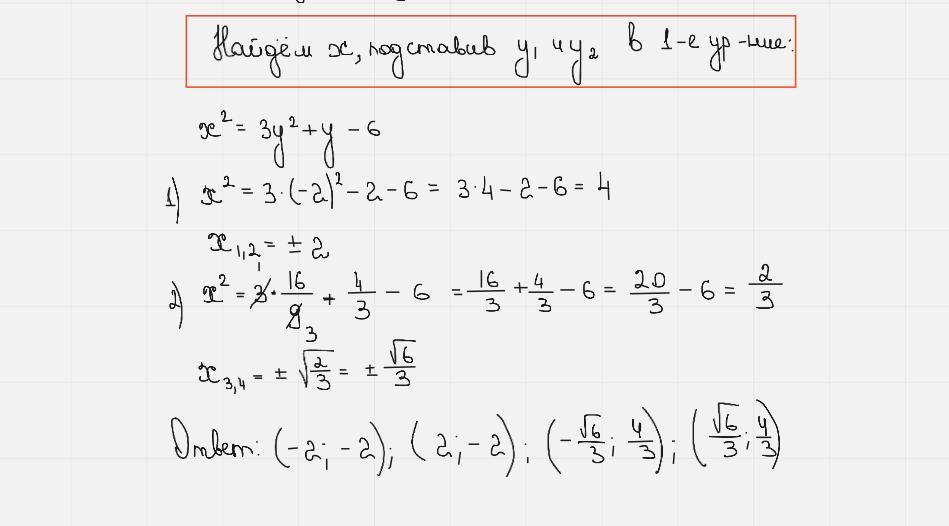 Найдём x, подставив y₁ и y₂ в 1-е ур-ние:
x² = 3y² + y − 6
1) x² = 3·(−2)² − 2 − 6 = 3·4 − 2 − 6 = 4
x₁,₂ = ± 2
2) x² = 3·16/9 + 4/3 − 6 = 16/3 + 4/3 − 6 = 20/3 − 6 = 2/3
x₃,₄ = ± √(2/3) = ± √6/3
Ответ: (−2; −2); (2; −2); (−√6/3; 4/3); (√6/3; 4/3)